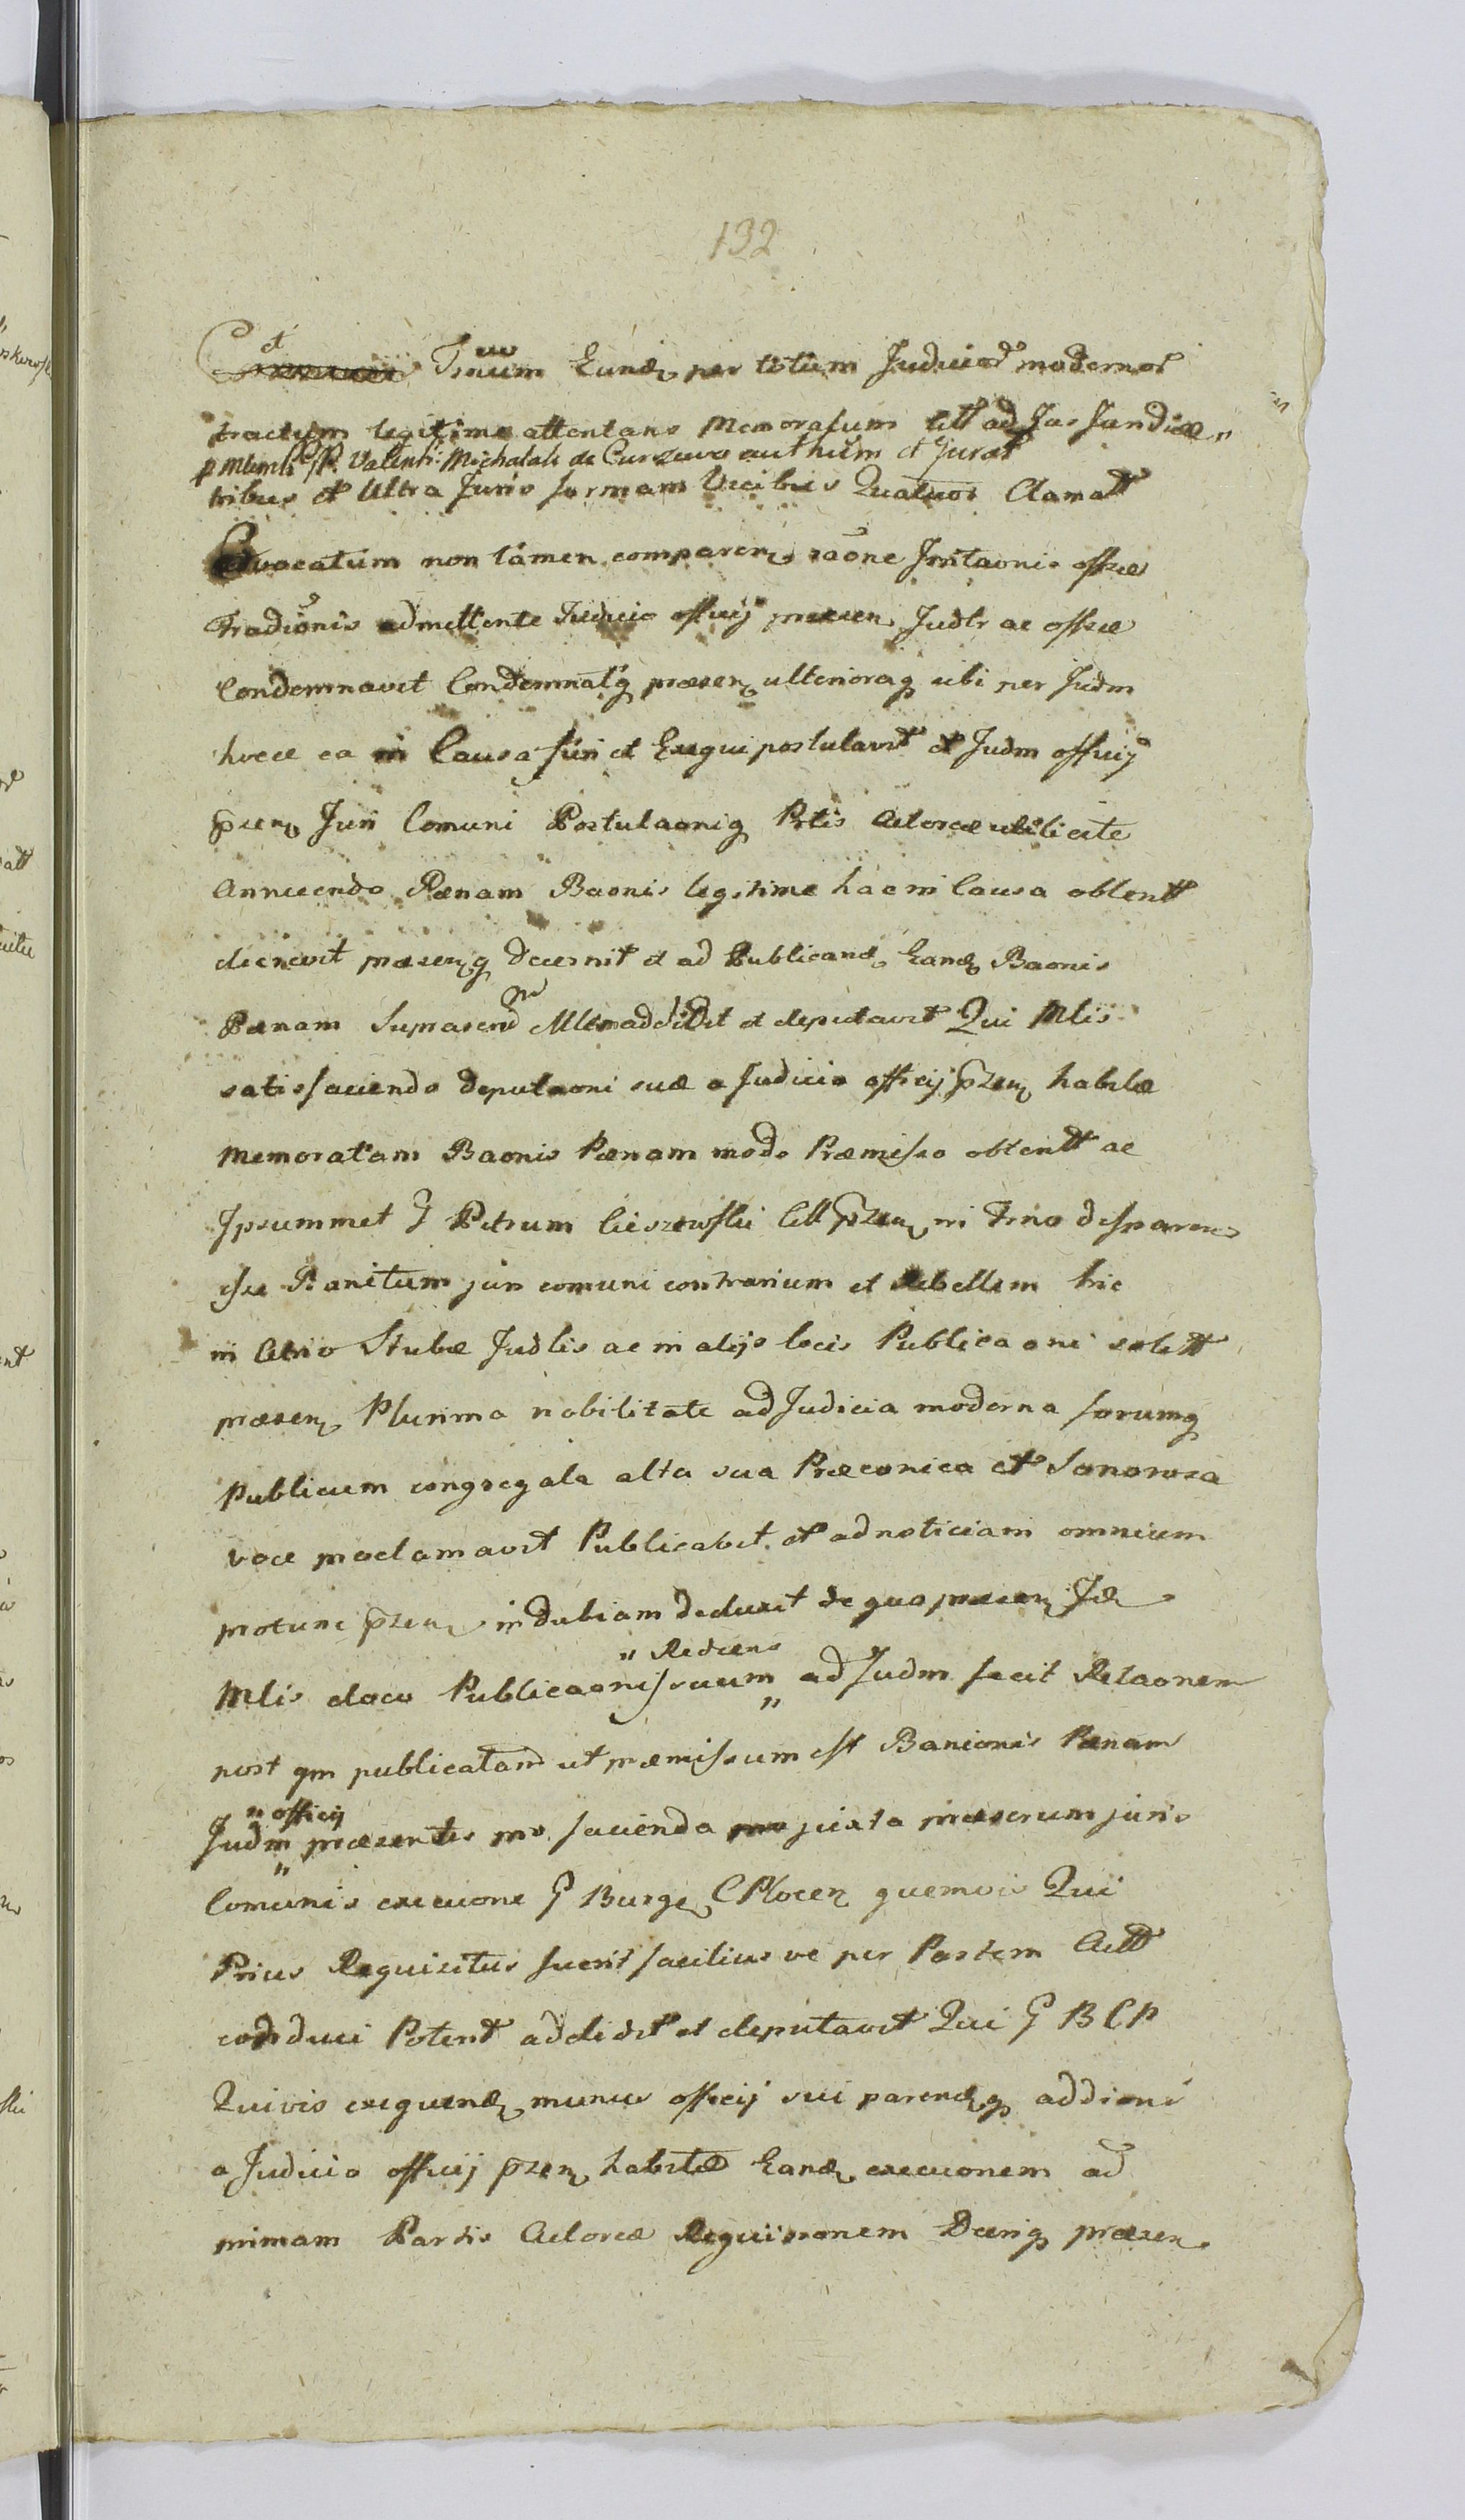 132
et Tnum Eund per totum Judicior modernor
tractum legitime attentans Memoratum Citt ad Jus standae
p Mlem Valent: Michalak de authum et Jurat
tribus et Ultra Juris formam Vicibus Quatuor Clamatt
Evocatum non tamen comparen raone offtae
Tradionis admittente Judicio officij praesen Judtr ac offtae
Condemnavit Condemnatq praesen ulterioraq sibi per Judm
hocce ea in Causa fieri et Exequi postulavit et Judm officij
prsen Juri Comuni Postulaoniq Ptis Actoreae licite
Annuendo Paenam Baonis legitime hac in Causa obtentt
decrevit praesenq decernit et ad Publicand Eand Baonis
Paenam Suprascrip Mlem addidit et deputavit Qui Mlis
satisfaciendo deputaoni suae a Judicio officij przen habitae
Memoratam Baonis Paenam modo Praemisso obtentt ac
Ipsummet G Petrum Cieszewski Citt przen in Tno
esse Banitum juri comuni contrarium et Rebellem hic
in Atrio Stubae Judlis ac in alijs locis Publicaoni solitt
praesen Plurima nobilitate ad Judicia moderna forumq
Publicum congregata alta sua Praeconica et Sonorosa
voce proclamavit Publicavit et ad noticiam omnium
protunc przen indubiam deduxit de quo praesen Id
Rediens
Mlis eloco Publicaonis suum ad Judm fecit Relaonem
post qm publicatam ut praemissum est Banionis Paenam
officij
Judm praesentis pro facienda juxta praescrum juris
Comunis execuone G Burge CPlocen quemvis Qui
Prius Requisitus fuerit facilius ve per Partem Actt
conduci Poterit addidit et deputavit Qui G B C P
Quivis exequend munus officij sui parendq addioni
a Judicio officij przen habitae Eand execuonem ad
primam Partis Actoreae Requisionem praesen